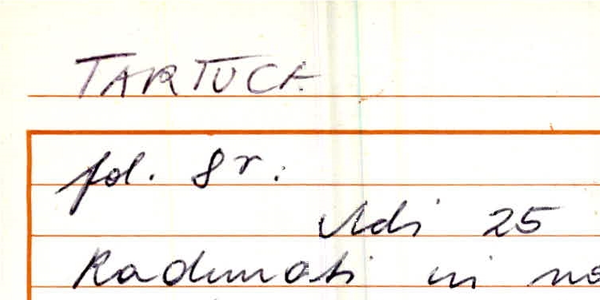 TARTUCA
fol. 8r:
Adi 25
Radunati in